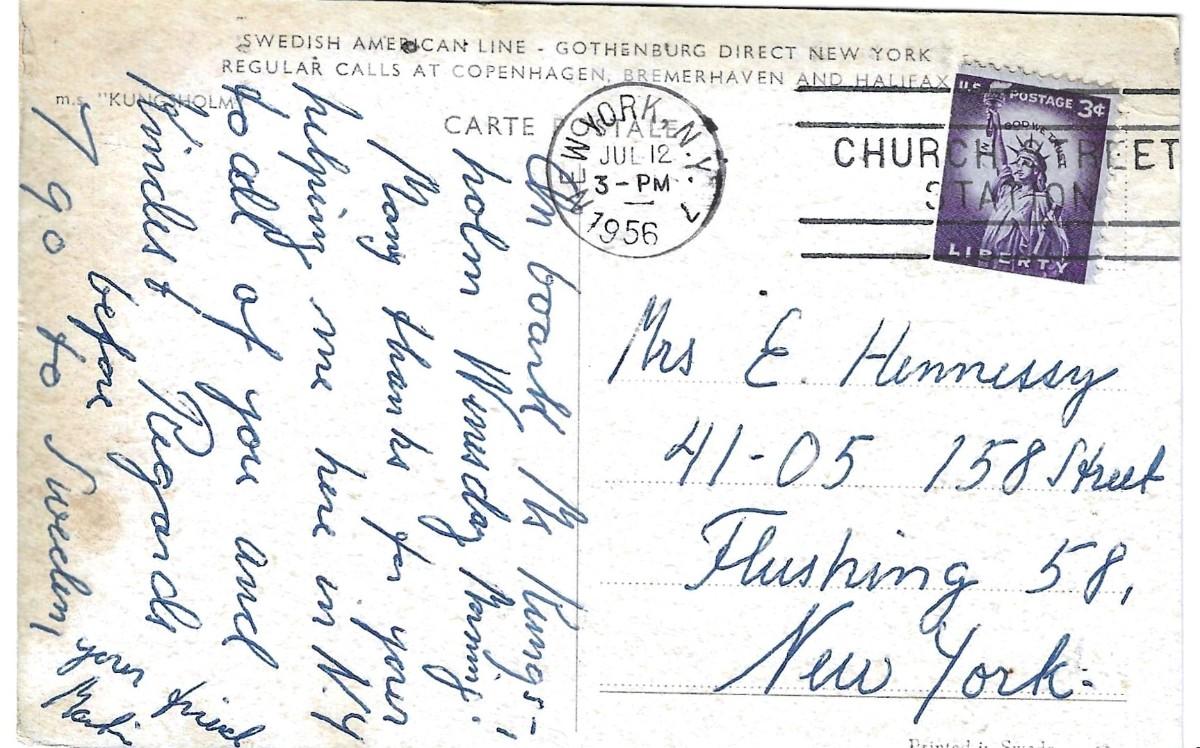 SWEDISH AMERICAN LINE - GOTHENBURG DIRECT NEW YORK
REGULAR CALLS AT COPENHAGEN, BREMERHAVEN AND HALIFAX
m.s. "KUNGSHOLM"
CARTE POSTALE
NEW YORK, N.Y. 1
JUL 12
3 - PM
1956
CHURCH STREET
STATION
U.S. POSTAGE 3¢
IN GOD WE TRUST
LIBERTY
On boank Ms Kungs-
holm Winisday Morning.
Many thanks for your
helping me here in N.Y
to all of you and
Kindest Regards
before
I go to Sweden,
your friend
Mrs E. Hennessy
41-05 158 Street
Flushing 58,
New York.
Printed in Sweden